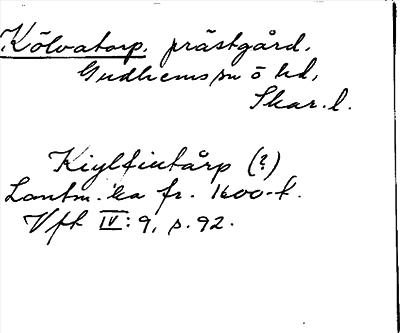 Kölvatorp, prästgård,
Gudhems sn o hd,
Skar. l.
Kiylfiutårp (?)
Lantm. ka fr. 1600-t.
Vft IV: 9, s. 92.